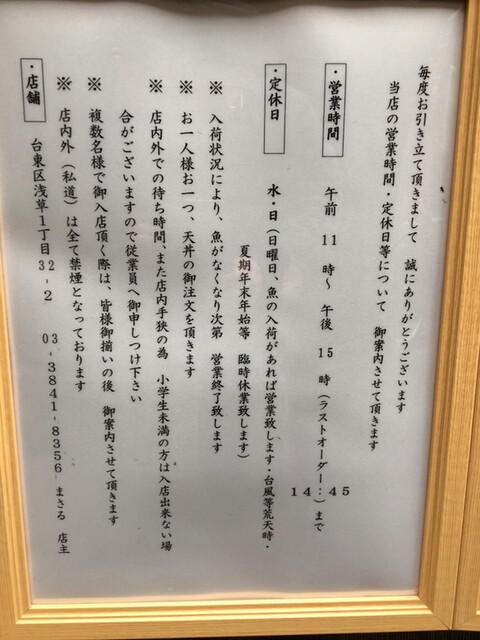 毎度お引き立て頂きまして　誠にありがとうございます
当店の営業時間・定休日等について　御案内させて頂きます
・営業時間　午前　11　時～　午後　15　時（ラストオーダー：14：45）まで
・定休日　水・日（日曜日、魚の入荷があれば営業致します・台風等荒天時・
夏期年末年始等　臨時休業致します）
※　入荷状況により、魚がなくなり次第　営業終了致します
※　お一人様お一つ、天丼の御注文を頂きます
※　店内外での待ち時間、また店内手狭の為　小学生未満の方は入店出来ない場
合がございますので従業員へ御申しつけ下さい
※　複数名様で御入店頂く際は、皆様御揃いの後　御案内させて頂きます
※　店内外（私道）は全て禁煙となっております
・店舗　台東区浅草1丁目32-2　03-3841-8356　まさる　店主